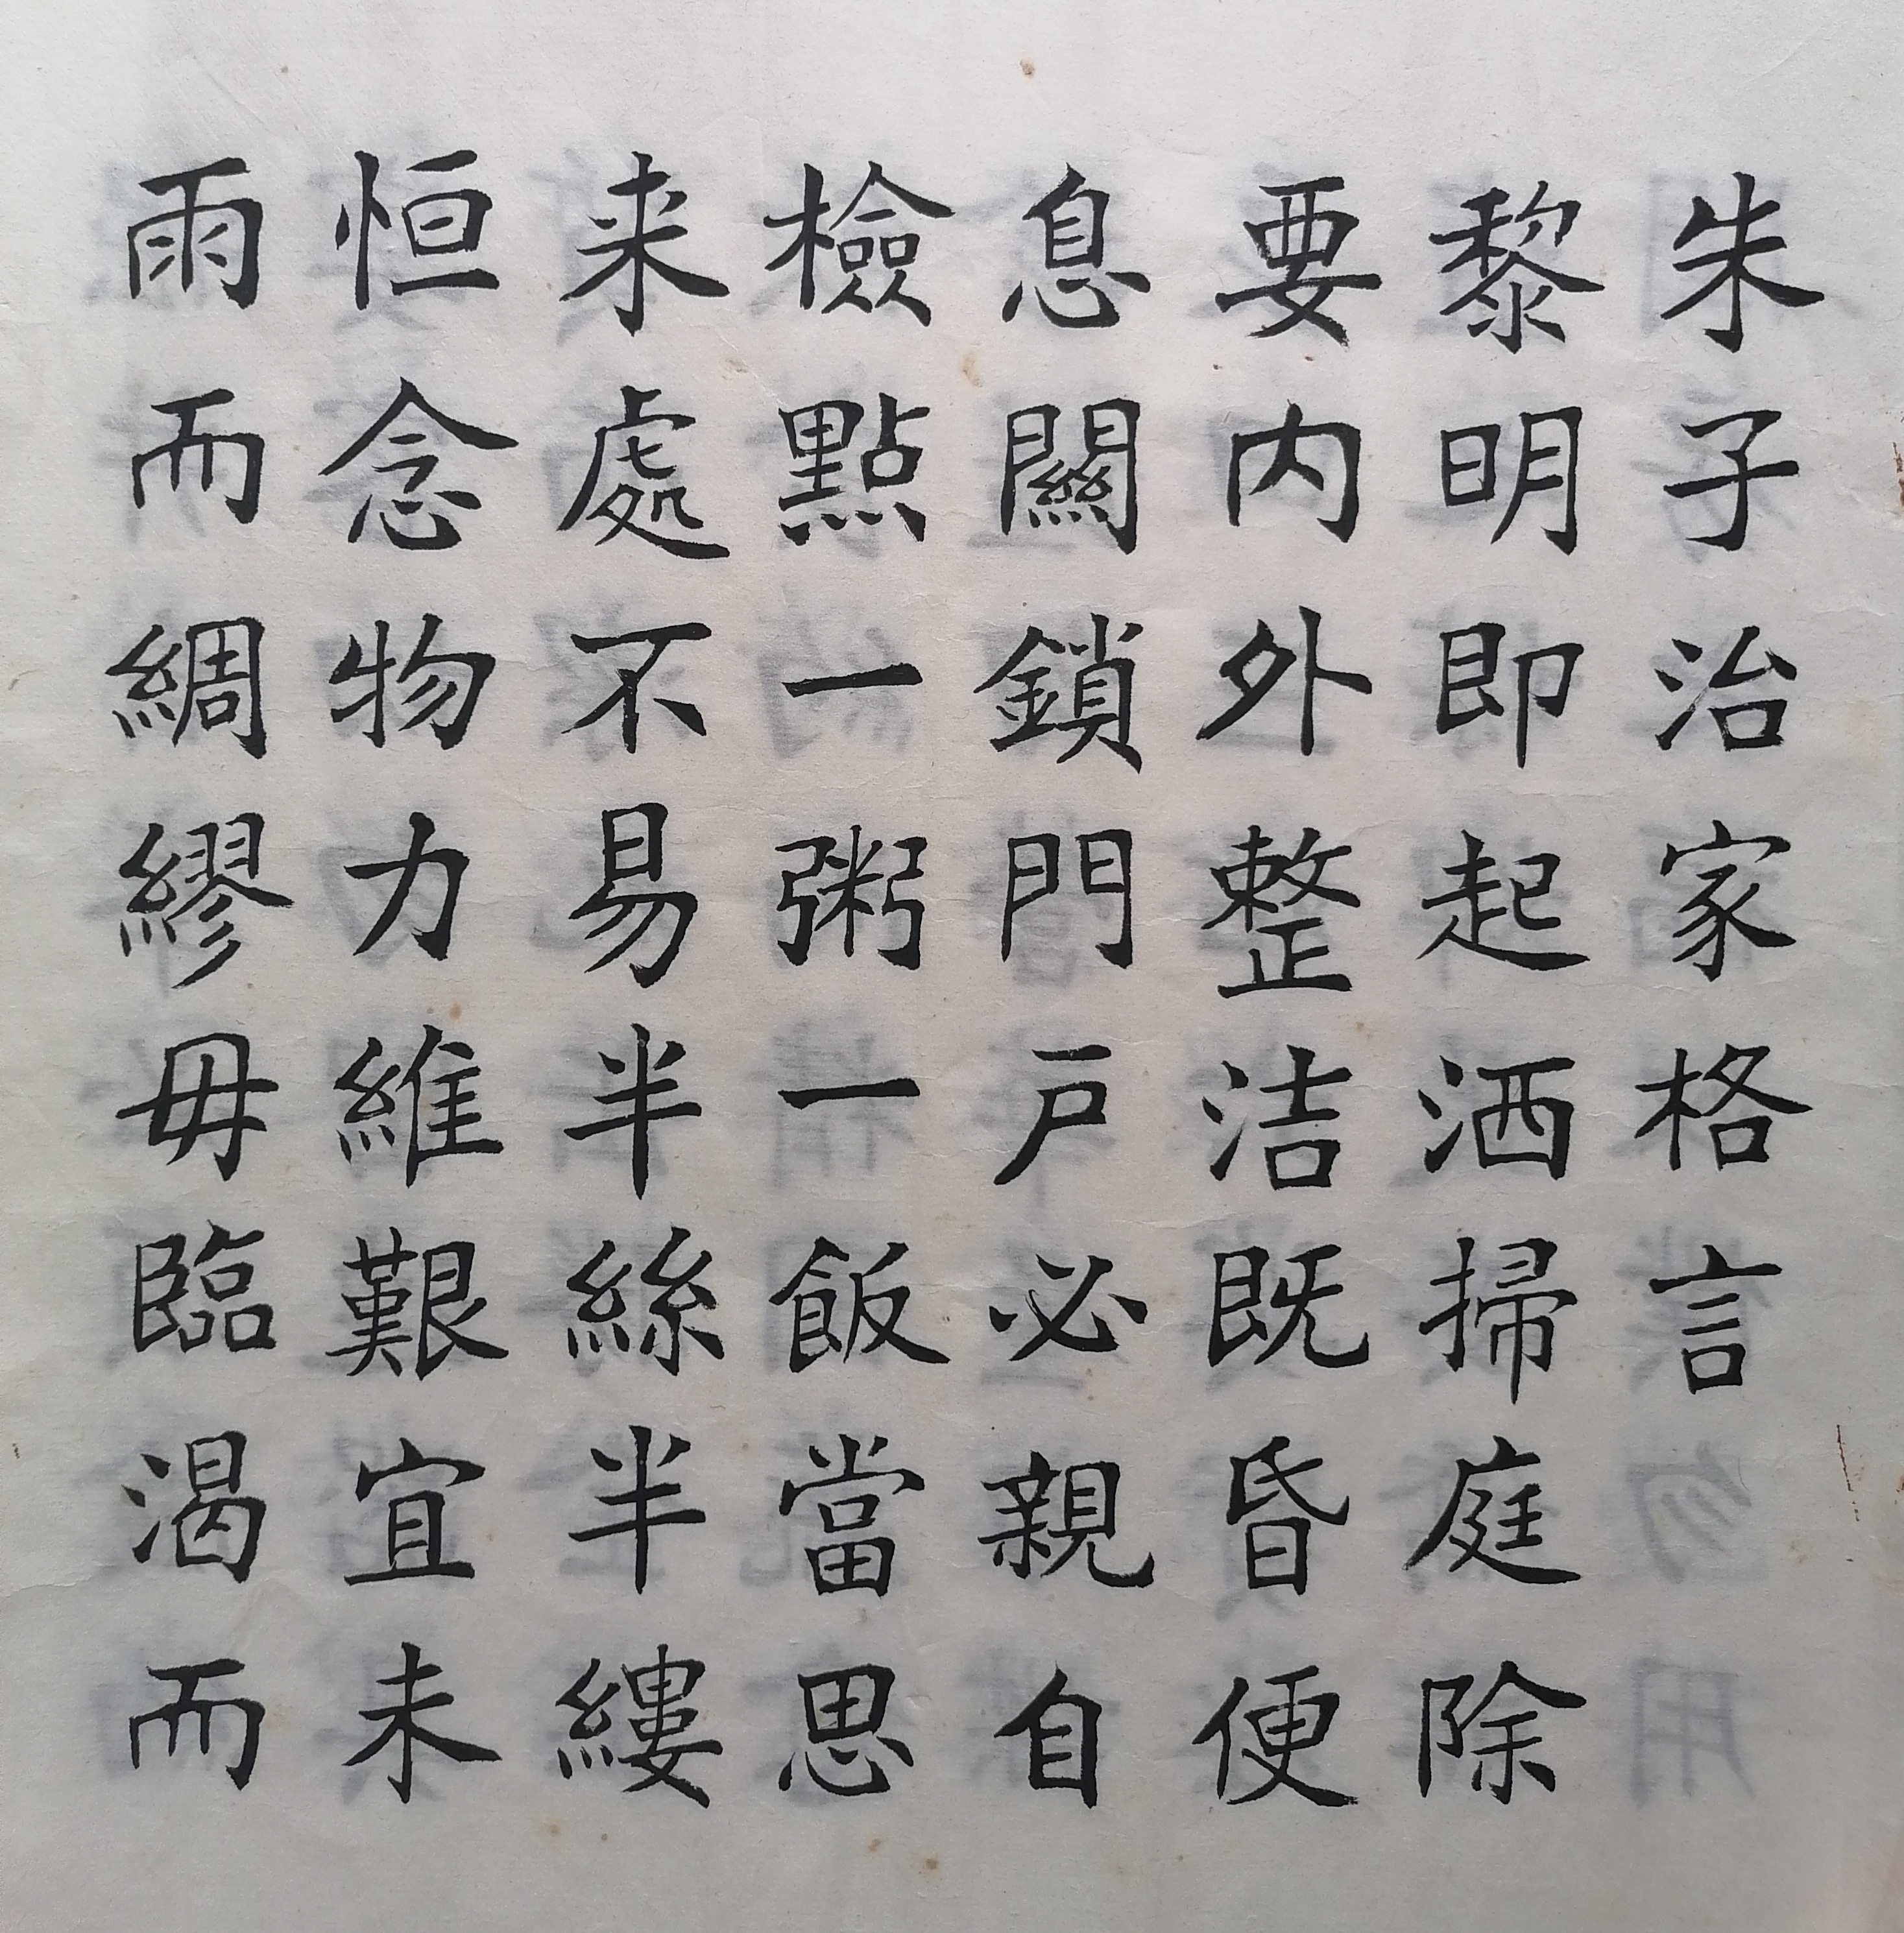 朱子治家格言
黎明即起洒掃庭除
要内外整洁既昏便
息關鎖門户必親自
檢點一粥一飯當思
来處不易半絲半縷
恒念物力維艱宜未
雨而綢繆毋臨渴而